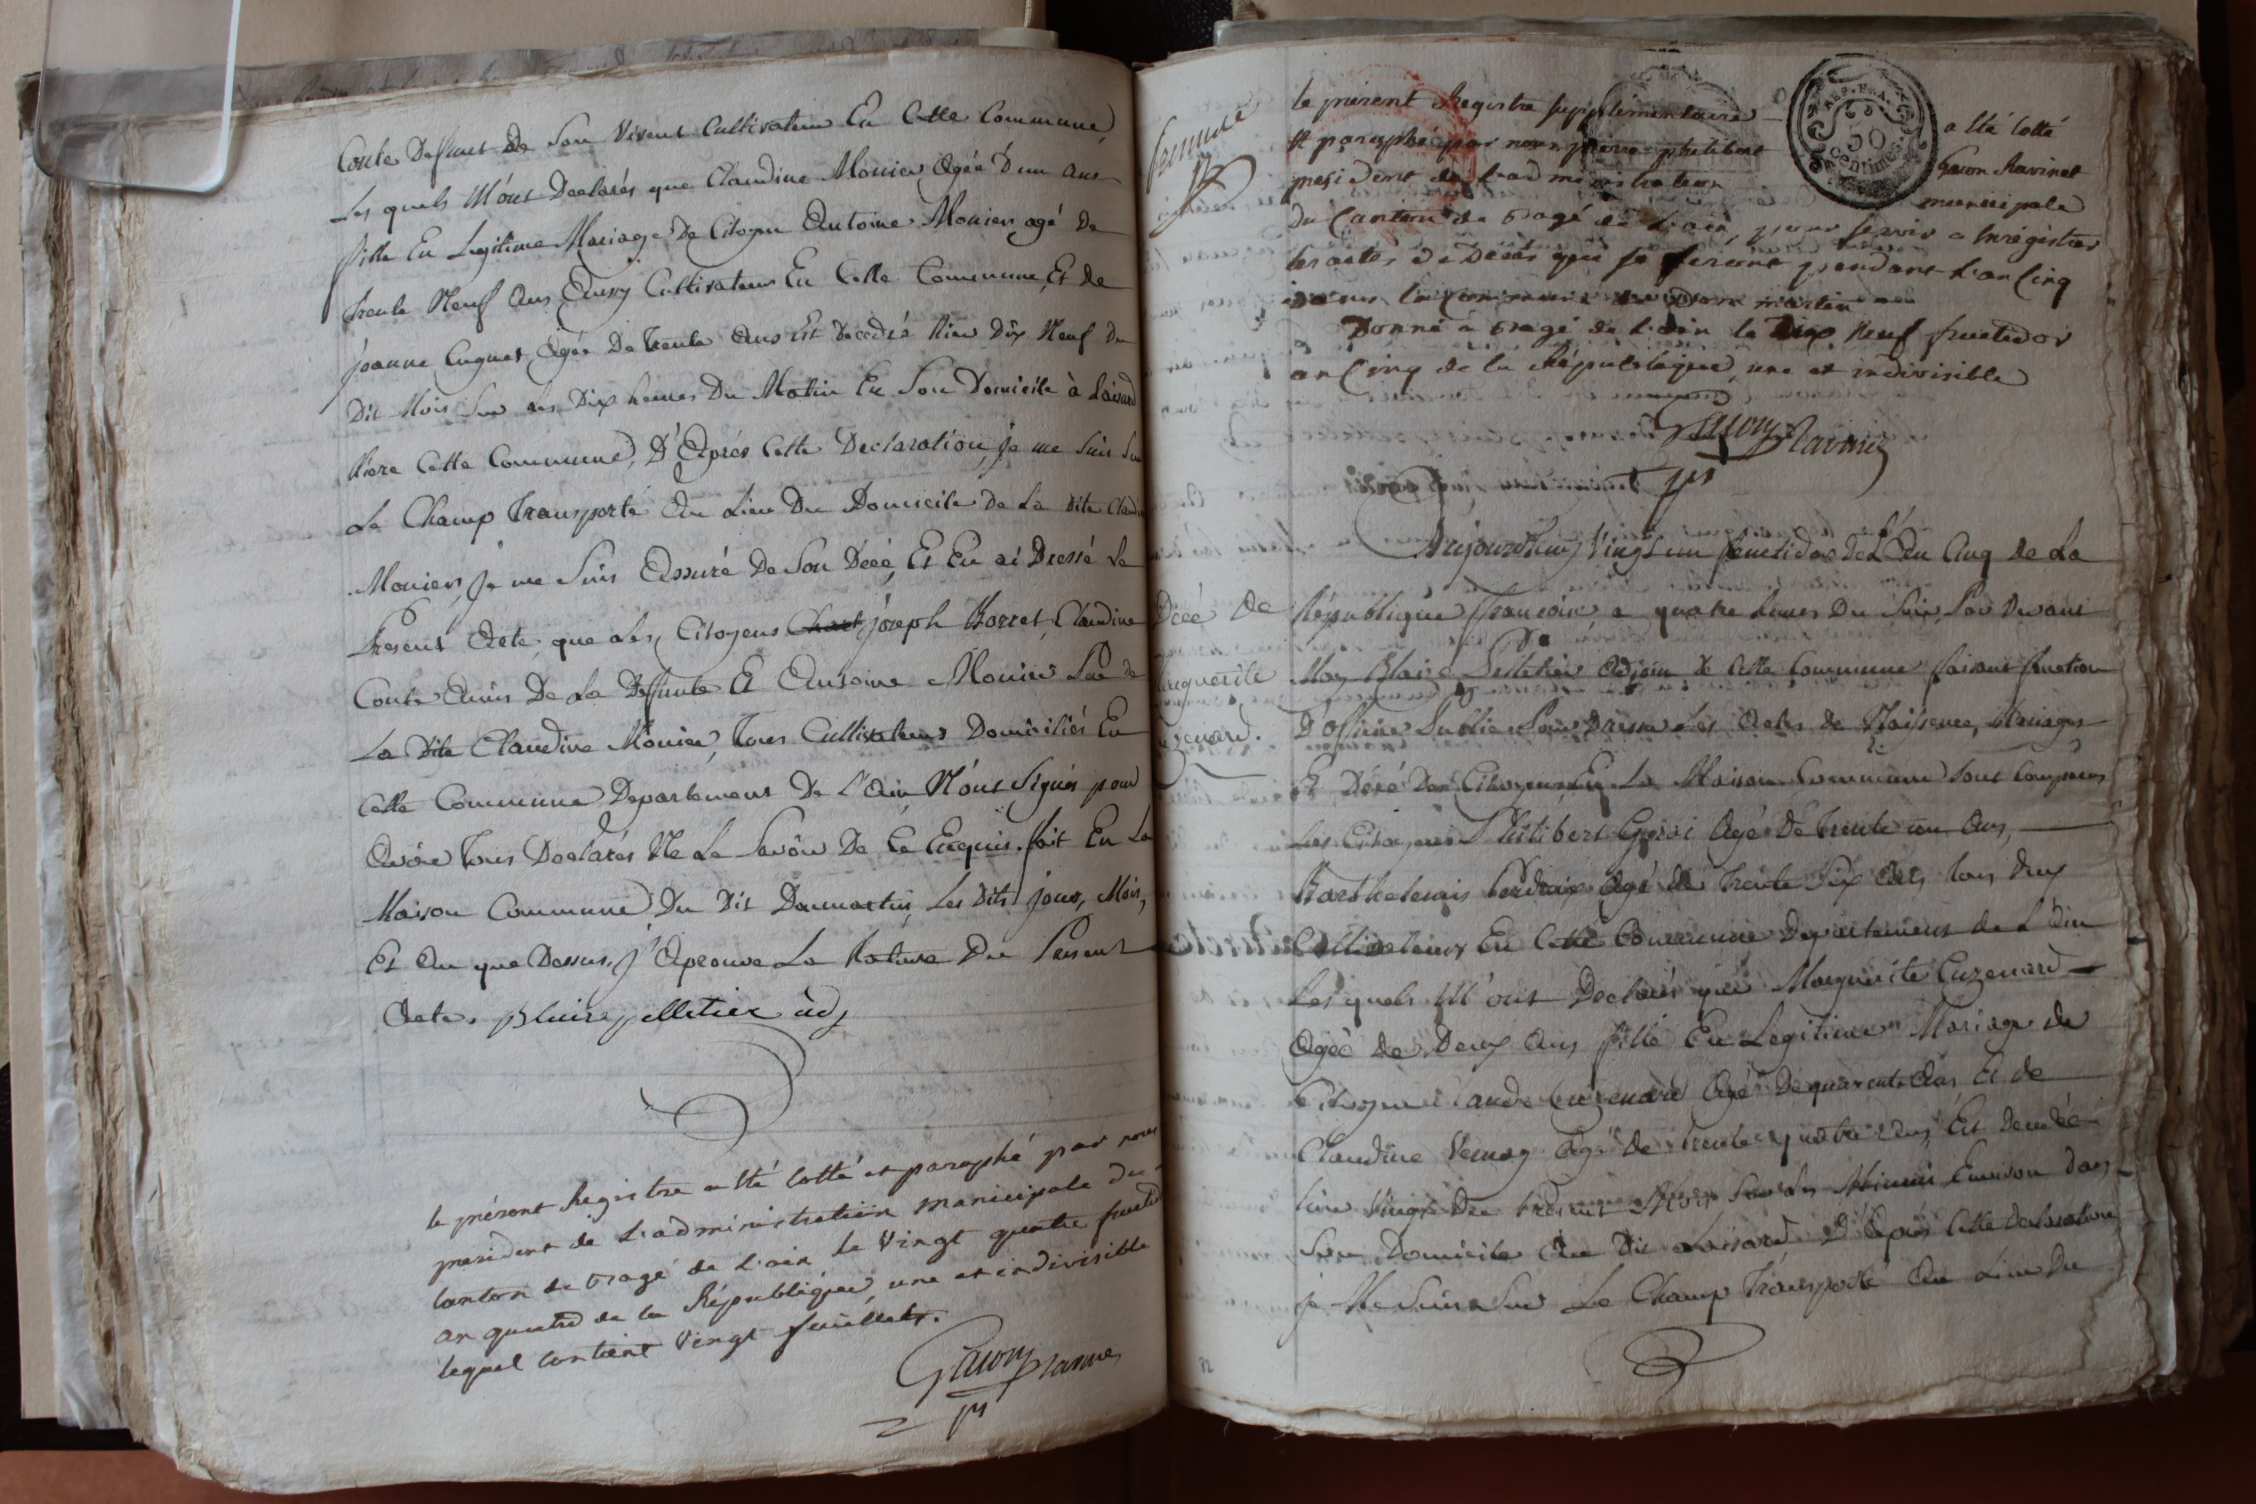 Conte Deffunt de Son Vivent Cultivateur En Cette Commune,
Les quels M'ont Declarés que Claudine Monier Agéé D'un ans
fille En Legitime Mariage De Citoyen Antoine Monier agé De
trente Neuf Ans, Cultivateur En Cette Commune, Et de
jeanne Cuguet, Agée De trente Ans Est Decedée hier Dix Neuf Du
Dit Mois Sur les Dix heures Du Matin En Son Domicile à
Riere Cette Commune, D'Aprés Cette Declaration, je me Suis Sur
Le Champ Transporté Au Lieu Du Domicile de La dite Claudine
Monier, je me Suis Assuré De Son Décé, Et En ai Dressé Le
Present Acte, que Les Citoyens joseph Borret, Claudine
Conte Amis De La Deffunte Et Antoine Monier Pere de
La Dite Claudine Monier, Tous Cultivateurs Domiciliés En
Cette Commune Departement De L'Ain N'ont Signés pour
Avoir Tous Declarés Ne Le Savoir De Ce Enquis. fait En La
Maison Commune Du Dit Danmartin, Les Dits jour, Mois,
Et An que Dessus, j'Aprouve La Rature Du Present
Acte. blaise pelletier adj
le présent Registre a Eté Cotté et paraphé par nous
president de L'administration municipale du
Canton de tragé de L'ain le vingt quatre fructid
an quatre de la République, une et indivisible
lequel Contient vingt feuillets.
Gavon Ravinet
pt
premiere
le présent Registre supplémentaire a Eté Cotté
Et paraphé par nous pierre philibert Gavon Ravinet
president de L'administration municipale
Du Canton de tragé de L'ain, pour servir a Enregistrer
les actes de Décès qui se feront pendant L'an Cinq
dans la Commune de Dom martin
Donné à tragé de L'ain le Dix Neuf fructidor
an Cinq de la République, une et indivisible
REP. FRA.
50
centimes
Gavon Ravinet
pt
Aujourdhuy Vingt un fructidor de L'An Cinq de La
Décé de
République francoise, a quatre heures Du Soir, Par Devant
Marguerite
Moy Blaise Pelletier Adjoin de Cette Commune faisant fonction
Cuzenard.
D'Officier Public Pour Dresser Les Actes de Naissence, Mariages
Et Décé Des Citoyens, En La Maison Commune Sont Comparus
Les Citoyens Philibert Agé De trente un Ans,
Barthelemis Perdrix Agé de Trente Six Ans, tous deux
Cultivateurs En Cette Commune Departement de L'Ain
Les quels M'ont Declarés que Marguerite Cuzenard
Agéé de Deux Ans fille En Legitime Mariage de
Citoyen Claude Cuzenard Agé De quarente Ans Et de
Claudine Vernay Agé De trente quatre Ans, Est Decedée
hier Vingt Du present Mois Sur Les Minuit Environ dans
Son Domicile Au Dit D'Aprés Cette declaration
je Me Suis Sur Le Champ Transporté Au Lieu Du